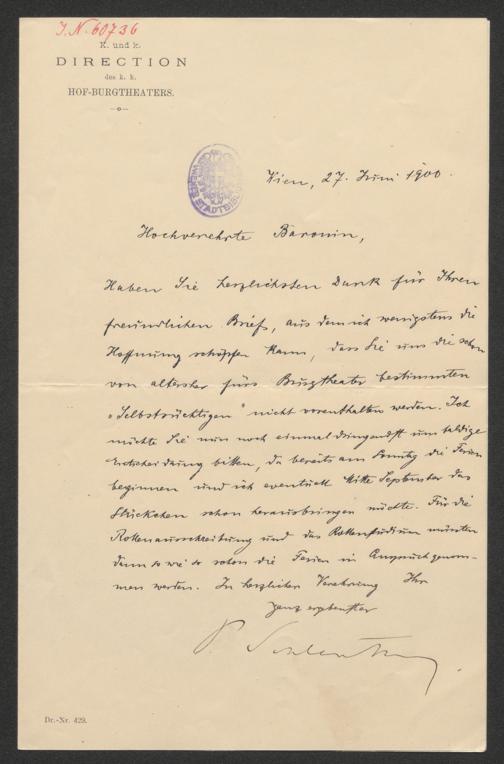 I.N. 60736
K. und k.
DIRECTION
des k. k.
HOF-BURGTHEATERS.
Wien, 27. Juni 1900.
Hochverehrte Baronin,
Haben Sie herzlichsten Dank für Ihren
freundlichen Brief, aus dem ich wenigstens die
Hoffnung schöpfen kann, dass Sie uns die schon
von altersher fürs Burgtheater bestimmten
„Selbstsüchtigen" nicht vorenthalten werden. Ich
möchte Sie nun noch einmal dringendst um baldige
Entscheidung bitten, da bereits am Sonntag die Ferien
beginnen und ich eventuell Mitte September das
Stückchen schon herausbringen möchte. Für die
Rollenausschreibung und das Rollenstudium müssten
dann so wie so schon die Ferien in Anspruch genom-
men werden. In herzlicher Verehrung Ihr
ganz ergebenster
P. Schlenther
Dr.-Nr. 429.